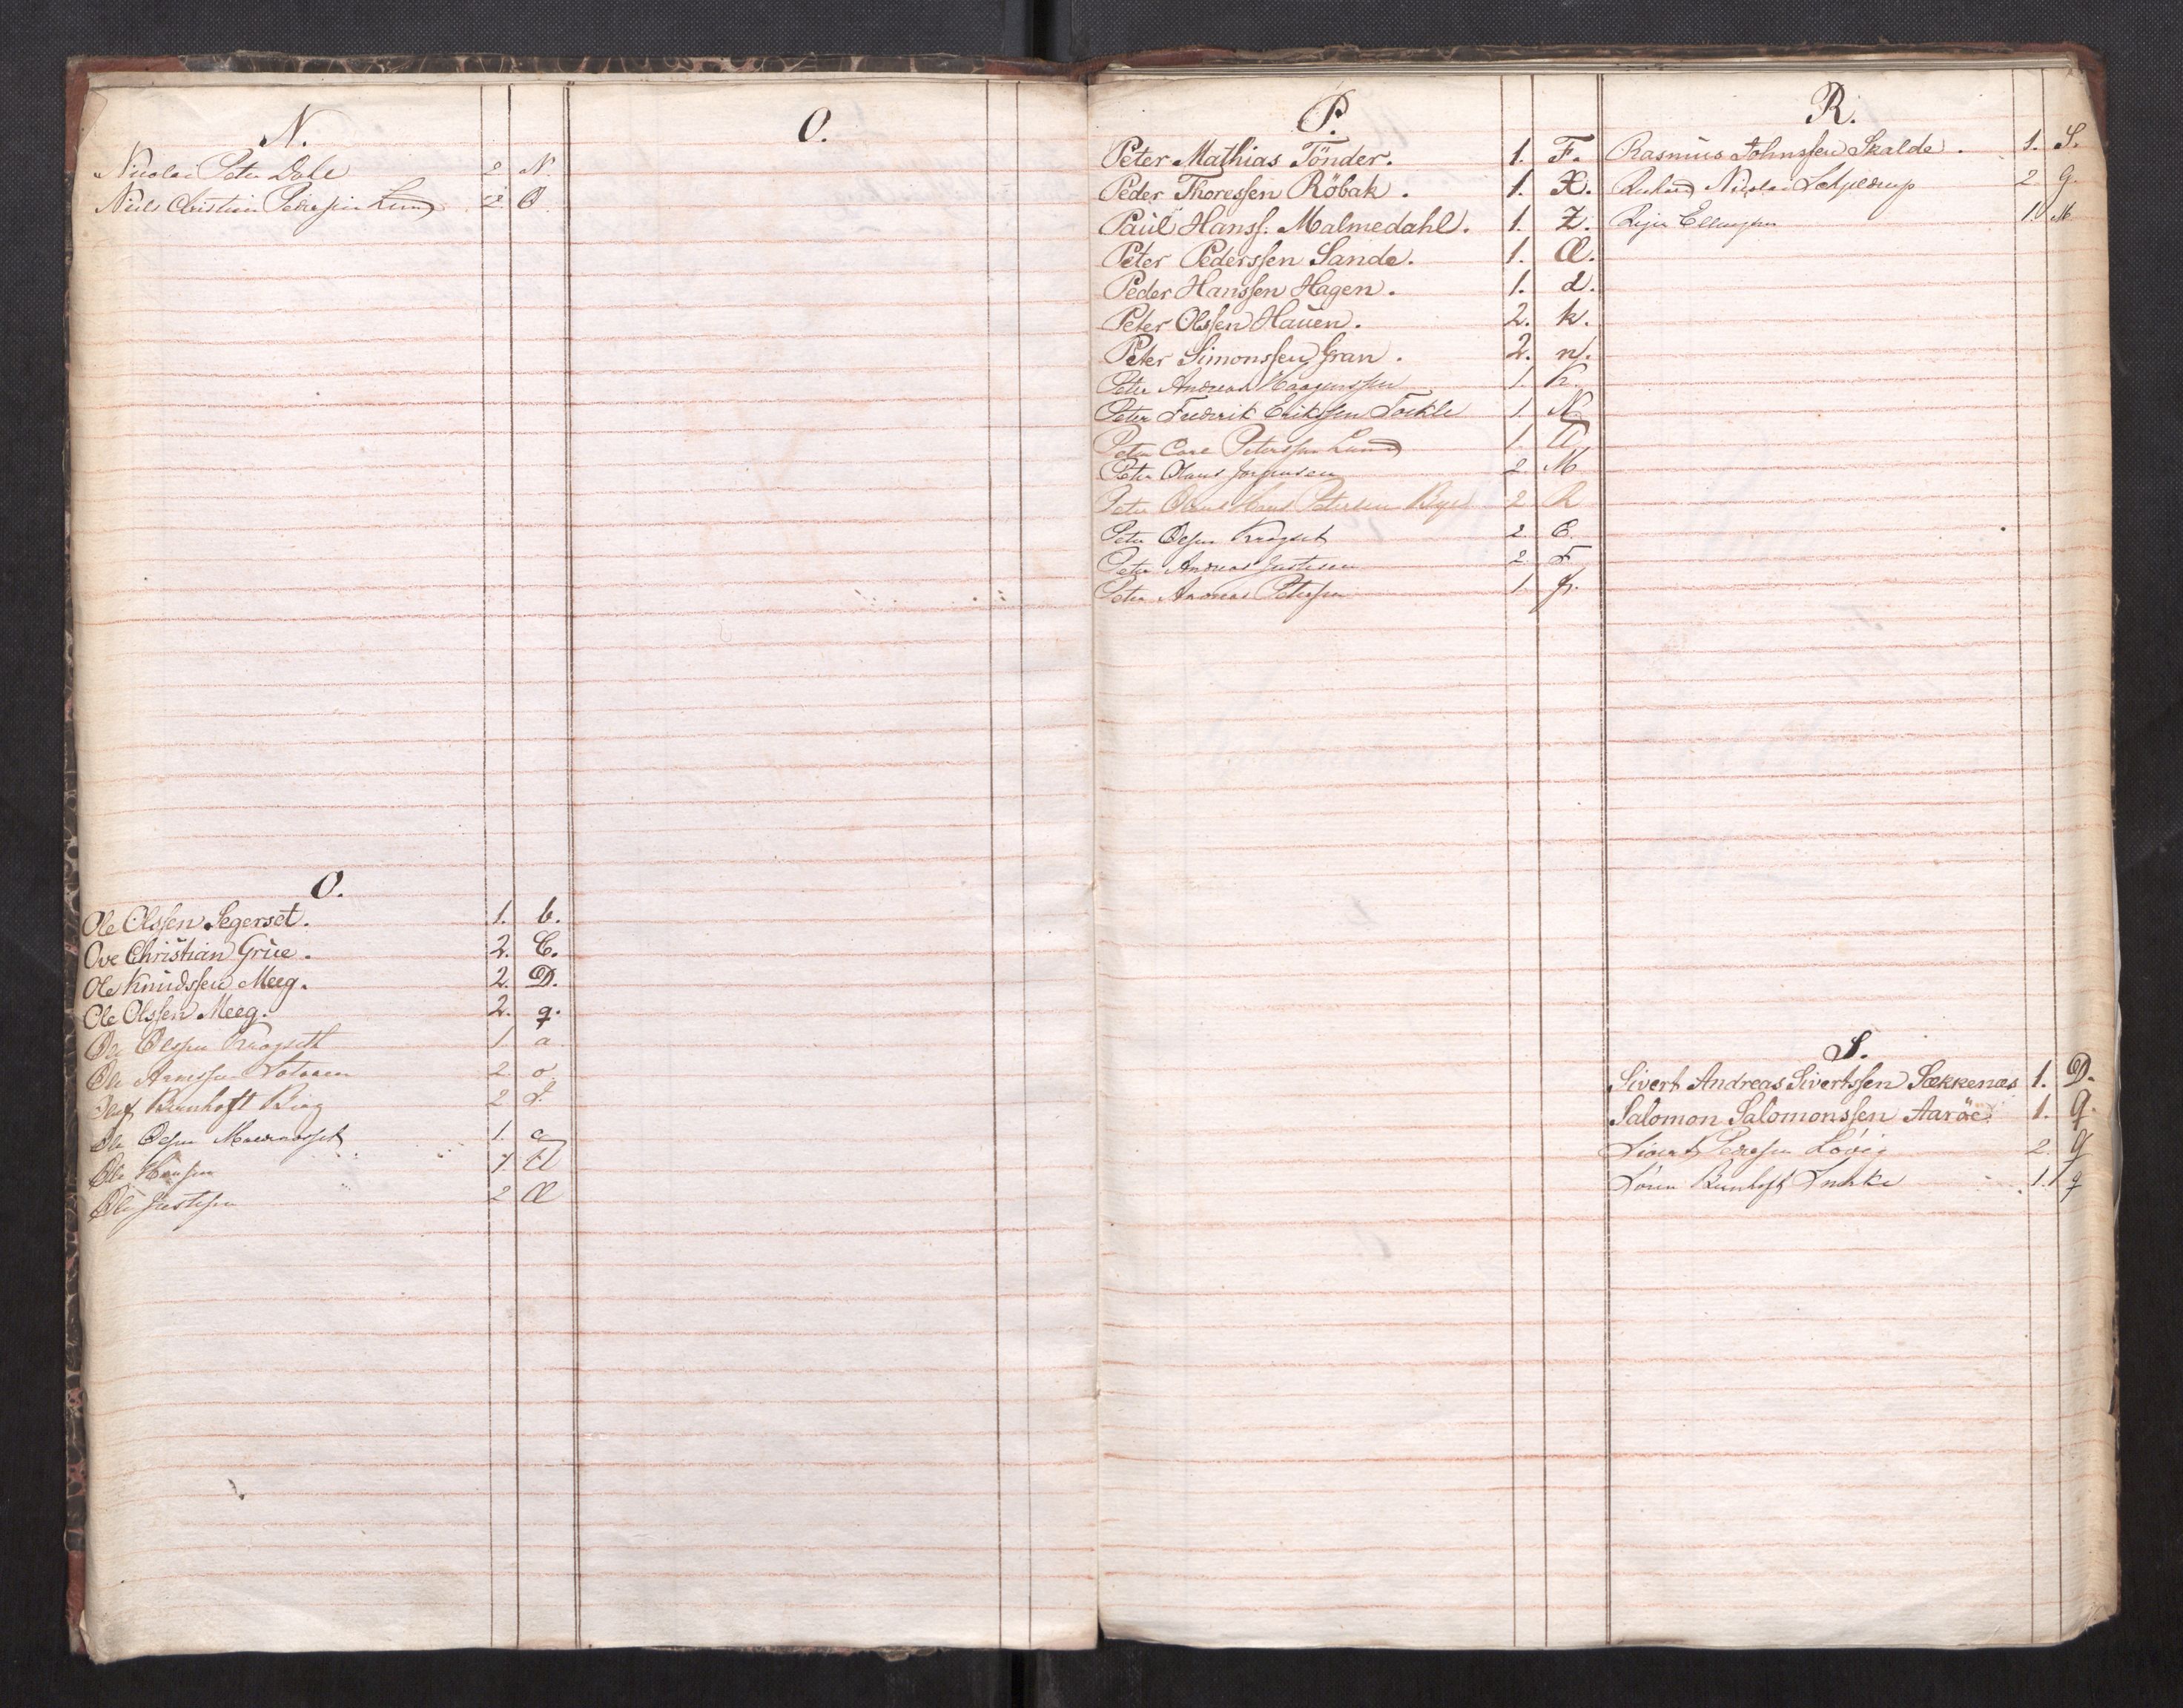 N.
Nicolai Peter Dahl 2 N.
Niels Christian Pedersen Lund 2. O
O.
Ole Olssen Segerset. 1. b.
Ove Christian Grüe. 2. C.
Ole Knudssen Meeg. 2. D.
Ole Olssen Meeg. 2. q.
Ole Olssen Kragseth 1 a
Ole 2 o
Bernhoft Berg 2
Ole Olsen 1.
Ole Hansen 1
Ole Justesen 2 Æ
O.
P.
Peter Mathias Tönder. 1. F.
Peder Thoressen Röbak. 1. X.
Paul Hanss. Malmedahl. 1. Z.
Peter Pederssen Sande. 1. Æ.
Peder Hanssen Hagen. 1. d.
Peter Olssen Hauen. 2. k.
Peter Simonssen Gran. 2. n.
Peter Andreas Haagenssen 1. K.
Peter Frederik Erikssen Tockle 1 N
Peter Carl Peterssen Lund 1.
Peter Olaus Jörgensen 2 M
Peter Hans Petersen 2 R
Peter Olsen Kragset 2.
Peter Andreas Justesen 2
Peter Andreas Petersen 1.
R.
Rasmus Johnssen Skalde. 1. S.
Richard Nicolai 2. g.
Ellingsen 1. M
S.
Sivert Andreas Sivertssen Sækkenæs 1. D.
Salomon Salomonssen Aaröe. 1. Q.
Sivert Pedersen Lövig 2.
Sören Bernhoft Luhke 1. q